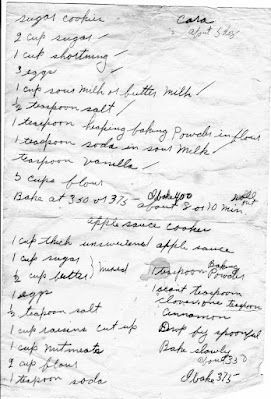 sugar cookies
Cara
2 cup sugar /
about 5 doz
1 cup shortning /
3 eggs /
1 cup sour milk or butter milk /
1/2 teaspoon salt /
1 teaspoon heaping baking Powder in flour
1 teaspoon soda in sour milk /
teaspoon vanilla /
5 cups flour
Bake at 350 or 375 - I bake 400
about 8 or 10 min
apple sauce cookies
1 cup thick unsweetened apple sauce
1 cup sugar
1/2 cup butter } mixed
1 teaspoon Baking Powder
1 eggs
1 scant teaspoon
cloves one teaspoon
1/2 teaspoon salt
Cinnamon
1 cup raisins cut up
Drop by spoonful
1 cup nutmeats
Bake slowly
about 350
2 cup flour
1 teaspoon soda
I bake 375